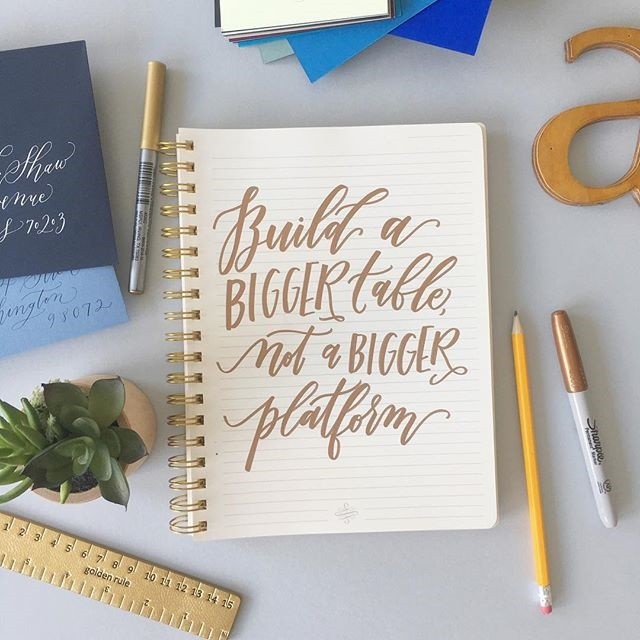 Shaw
70203
98072
Build a
BIGGER table,
not a BIGGER
platform
Sharpie
1 2 3 4 5 6 7 8 9 10 11 12 13 14 15
golden rule
1 2 3 4 5